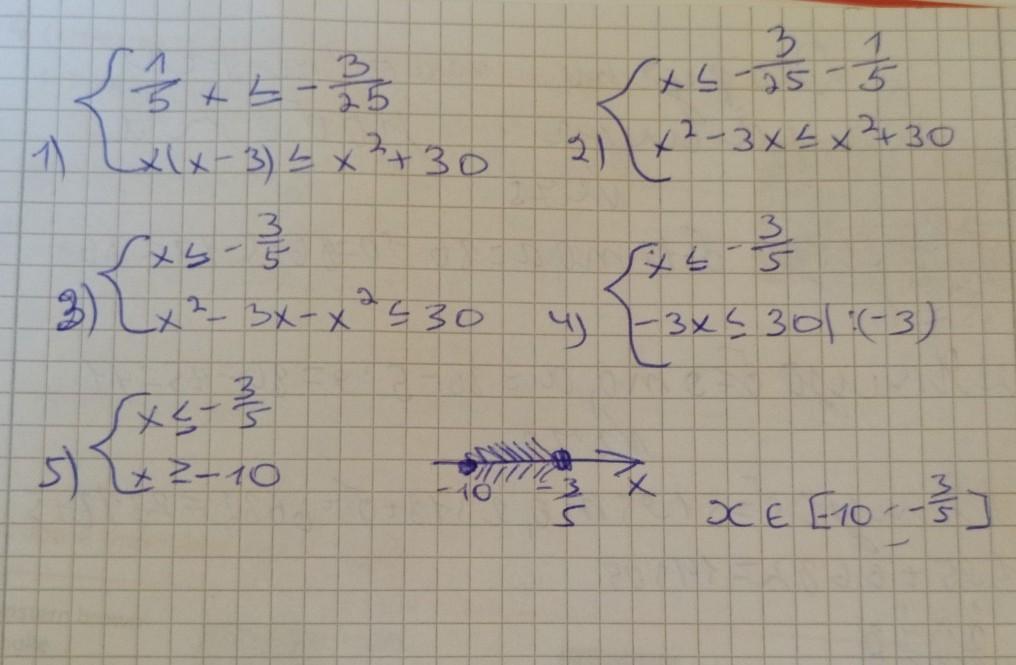 1) { 1/5 x ≤ - 3/25
x(x-3) ≤ x² + 30
2) { x ≤ - 3/25 - 1/5
x² - 3x ≤ x² + 30
3) { x ≤ - 3/5
x² - 3x - x² ≤ 30
4) { x ≤ - 3/5
-3x ≤ 30 | :(-3)
5) { x ≤ - 3/5
x ≥ -10
-10 - 3/5 x
x ∈ [-10 - - 3/5]